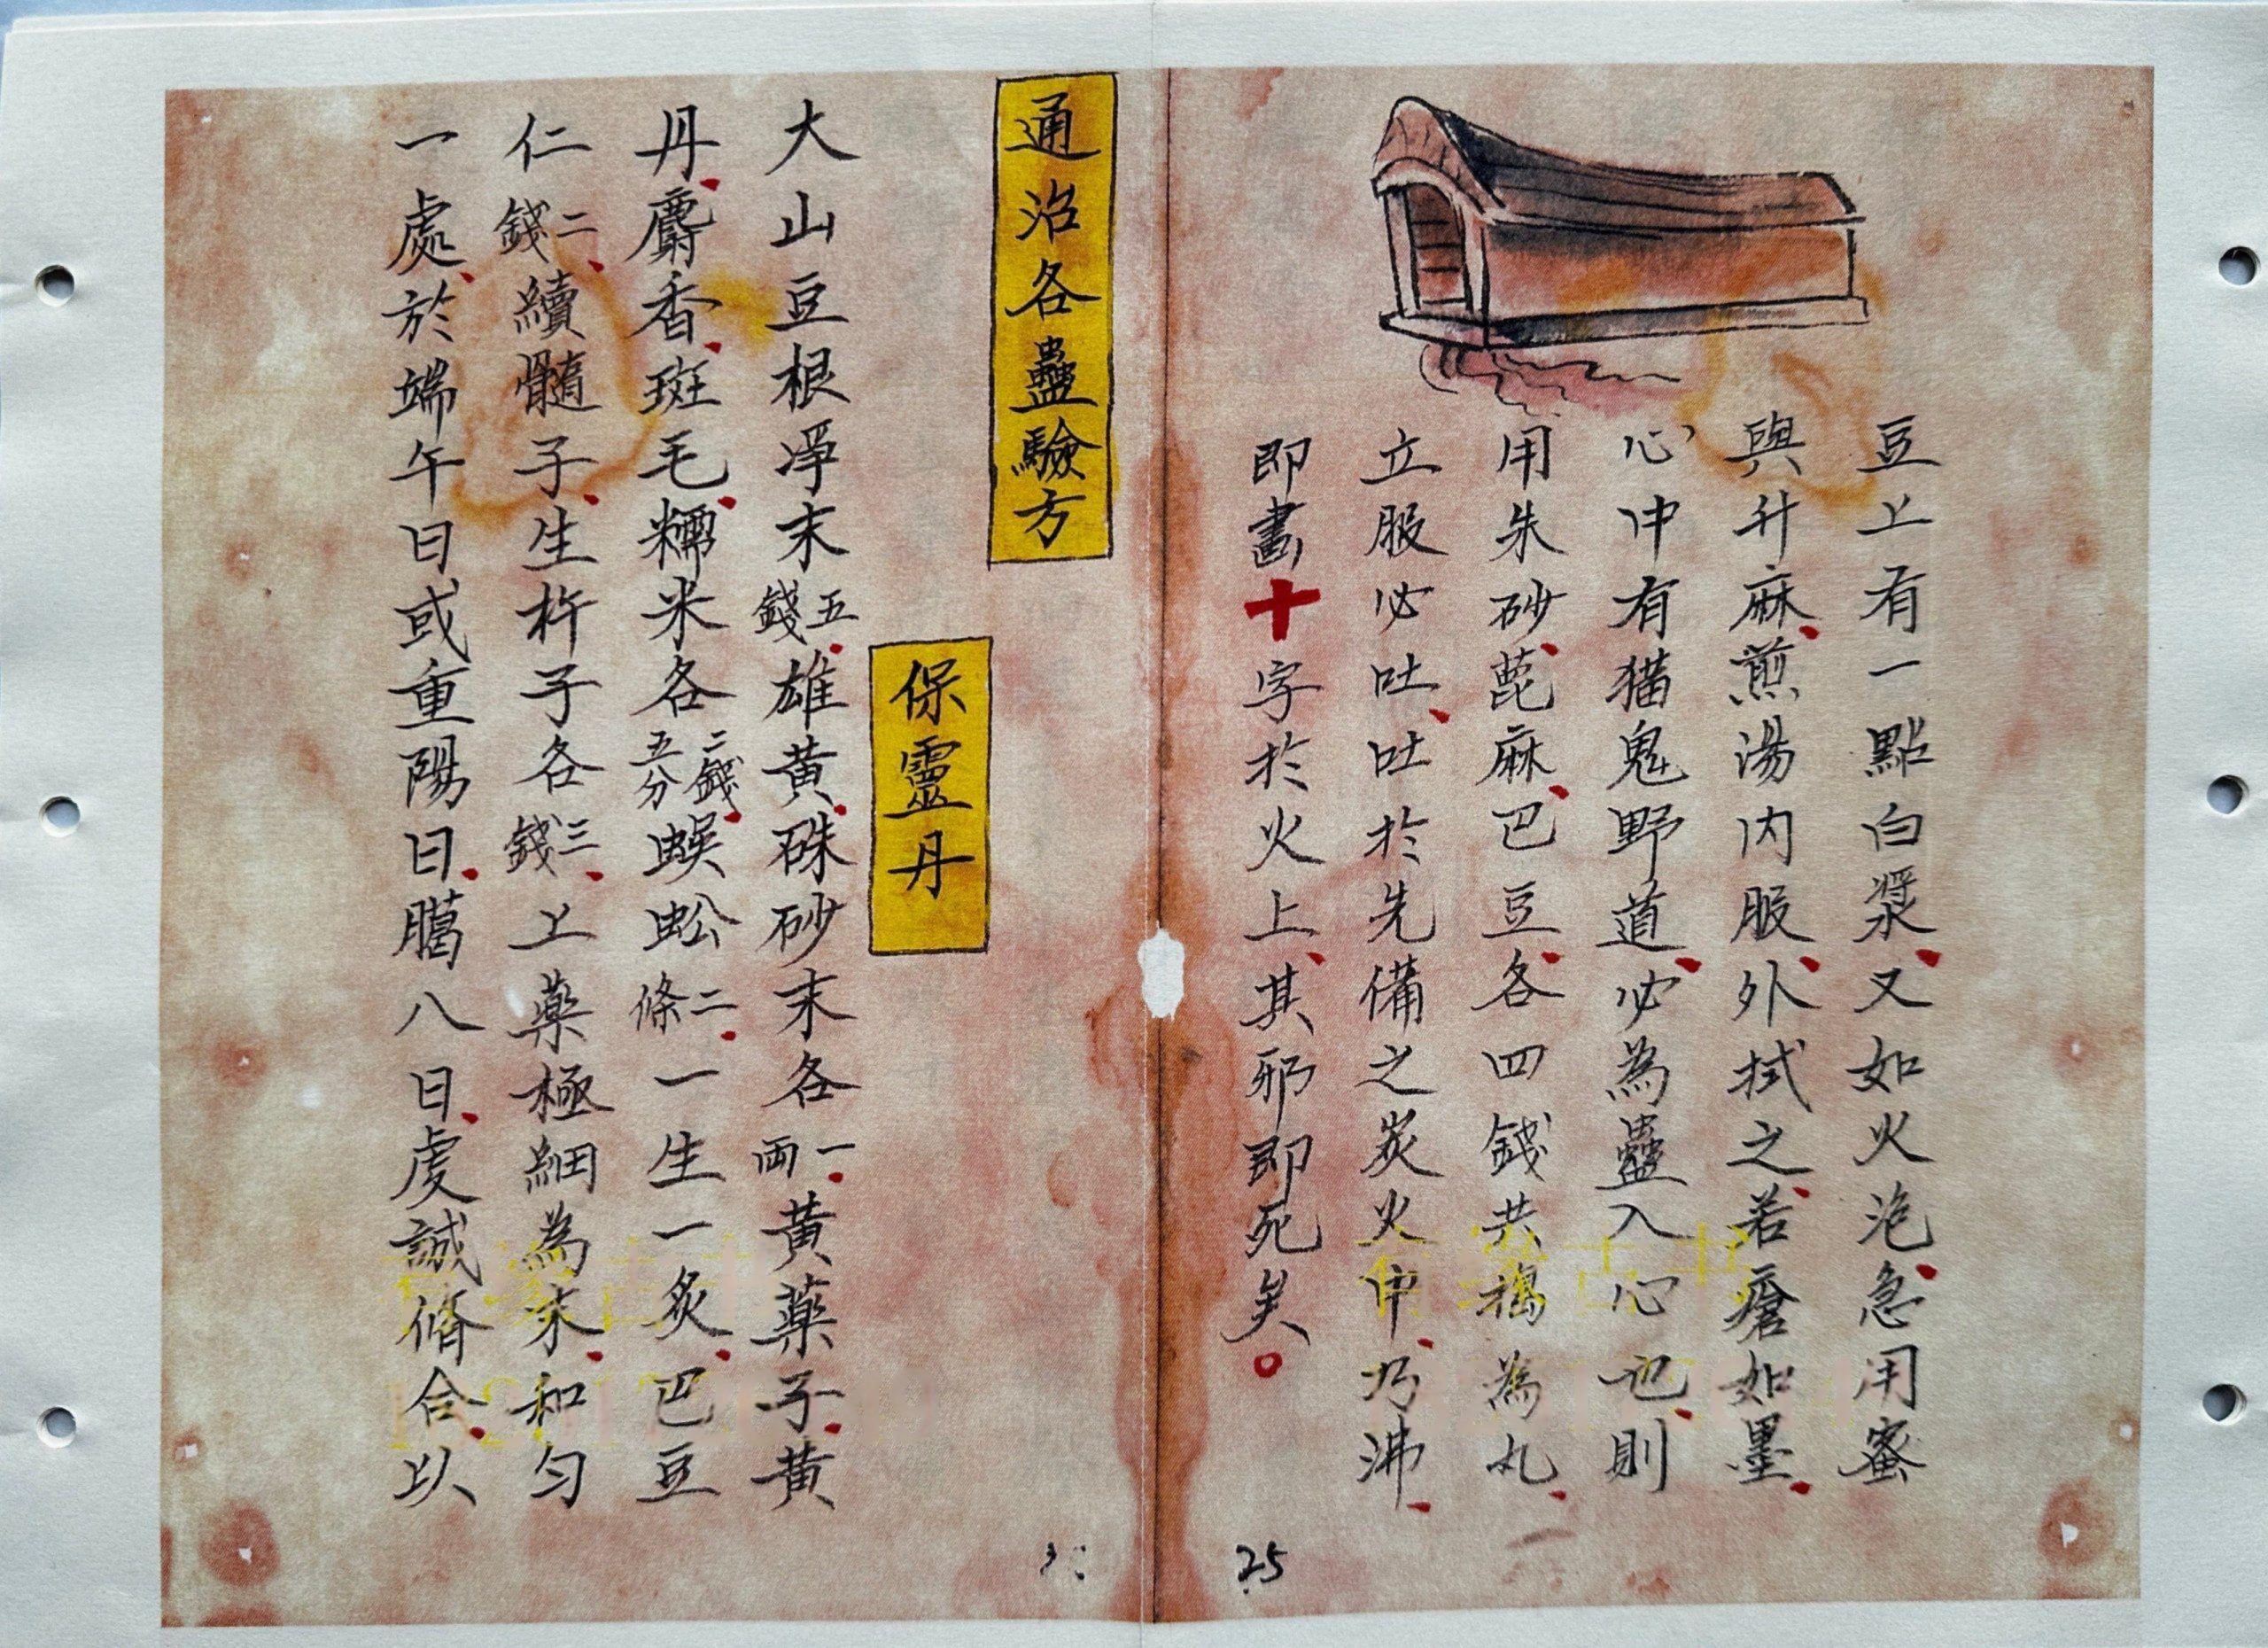 豆上有一點白漿又如火泡急用蜜
與升麻煎湯内服外拭之若瘡如墨
心中有猫鬼野道必為蠱入心也則
用朱砂蓖麻巴豆各四錢共搗為丸
立服必吐吐於先備之炭火中乃沸
即畫十字於火上其邪即死矣。
25
通治各蠱驗方
保靈丹
大山豆根凈末五錢雄黄硃砂末各一両黄藥子黄
丹麝香斑毛糯米各二錢五分蜈蚣二條一生一炙巴豆
仁二錢續髓子生杵子各三錢上藥極細為末和匀
一處於端午日或重陽日臈八日虔誠脩合以